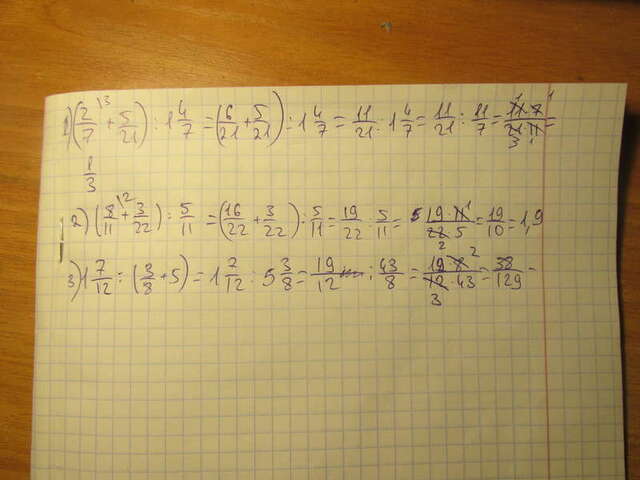 1) (2/7 \3 + 5/21) : 1 4/7 = (6/21 + 5/21) : 1 4/7 = 11/21 : 1 4/7 = 11/21 : 11/7 = 11·7/21·11 =
1/3
2) (8/11 \2 + 3/22) : 5/11 = (16/22 + 3/22) : 5/11 = 19/22 : 5/11 = 19·11/22·5 = 19/10 = 1,9
3) 1 7/12 : (3/8 + 5) = 1 7/12 : 5 3/8 = 19/12 : 43/8 = 19·8/12·43 = 38/129